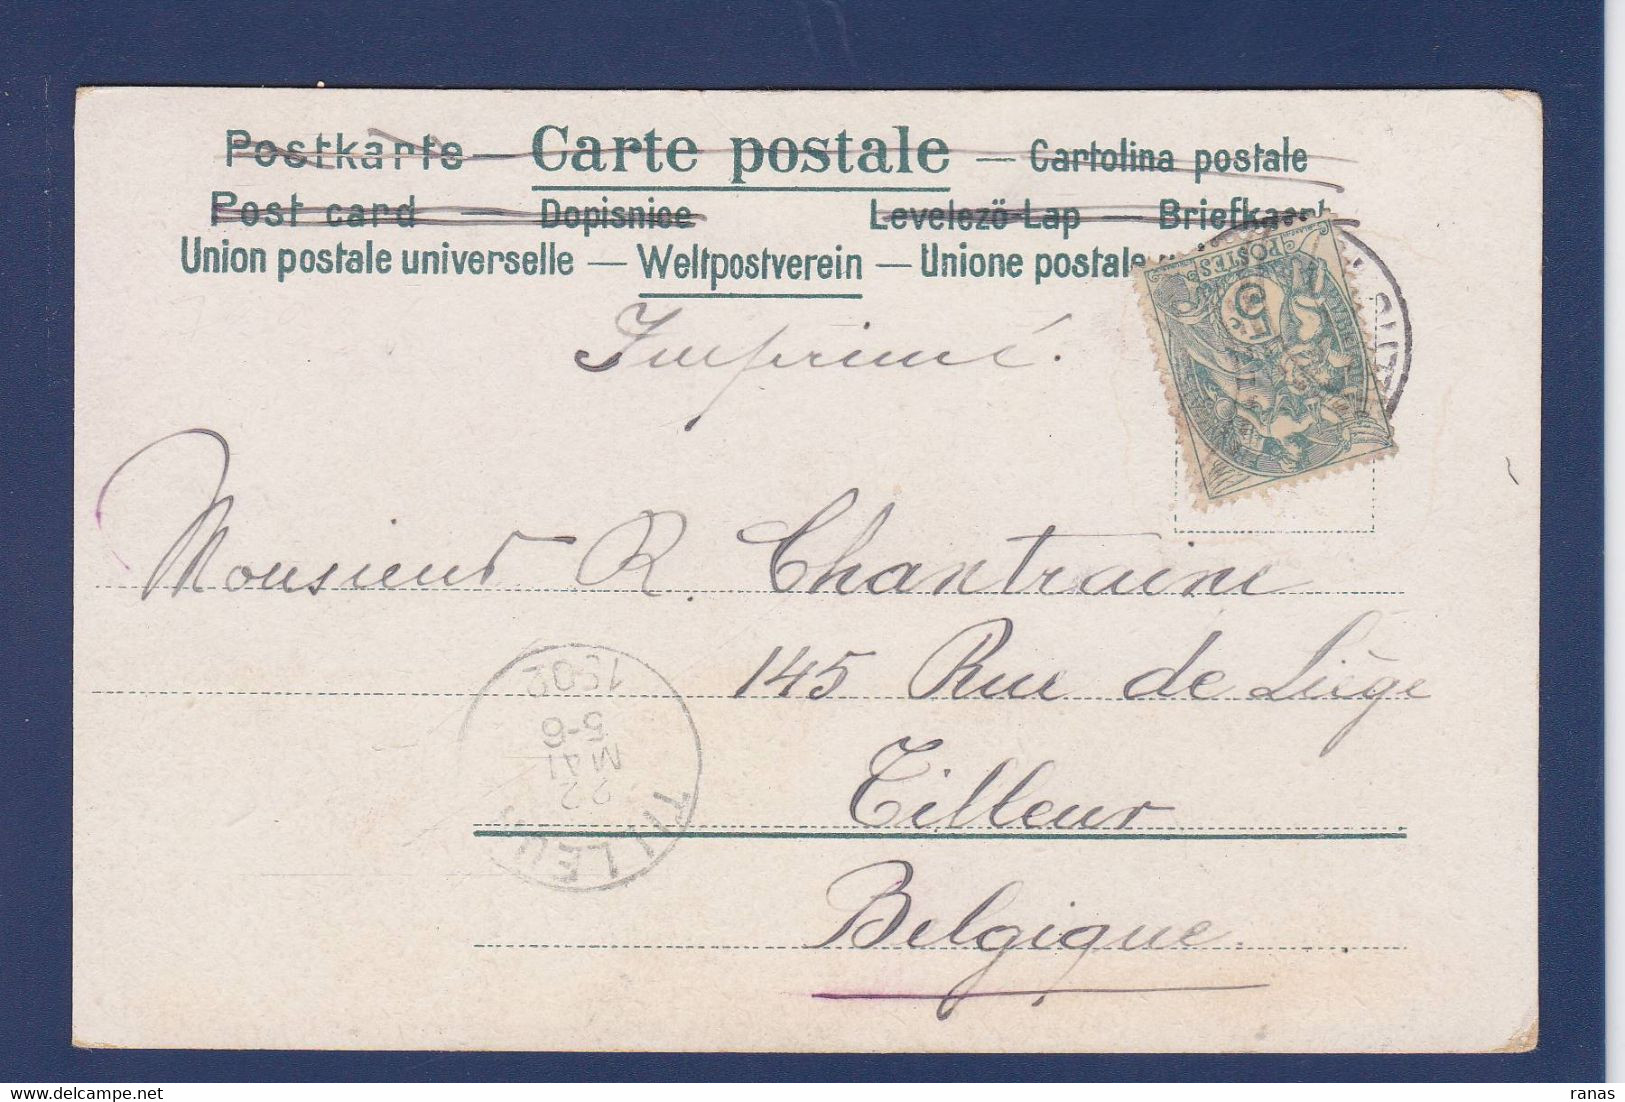 Postkarte — Carte postale — Cartolina postale
Post card — Dopisnice Levelező-Lap — Briefkaart
Union postale universelle — Weltpostverein — Unione postale
POSTES
5
Imprimé.
Monsieur R. Chantraine
145 Rue de Liège
Tilleur
Belgique.
TILLEUR
22
MAI
5-6
1902
ranas